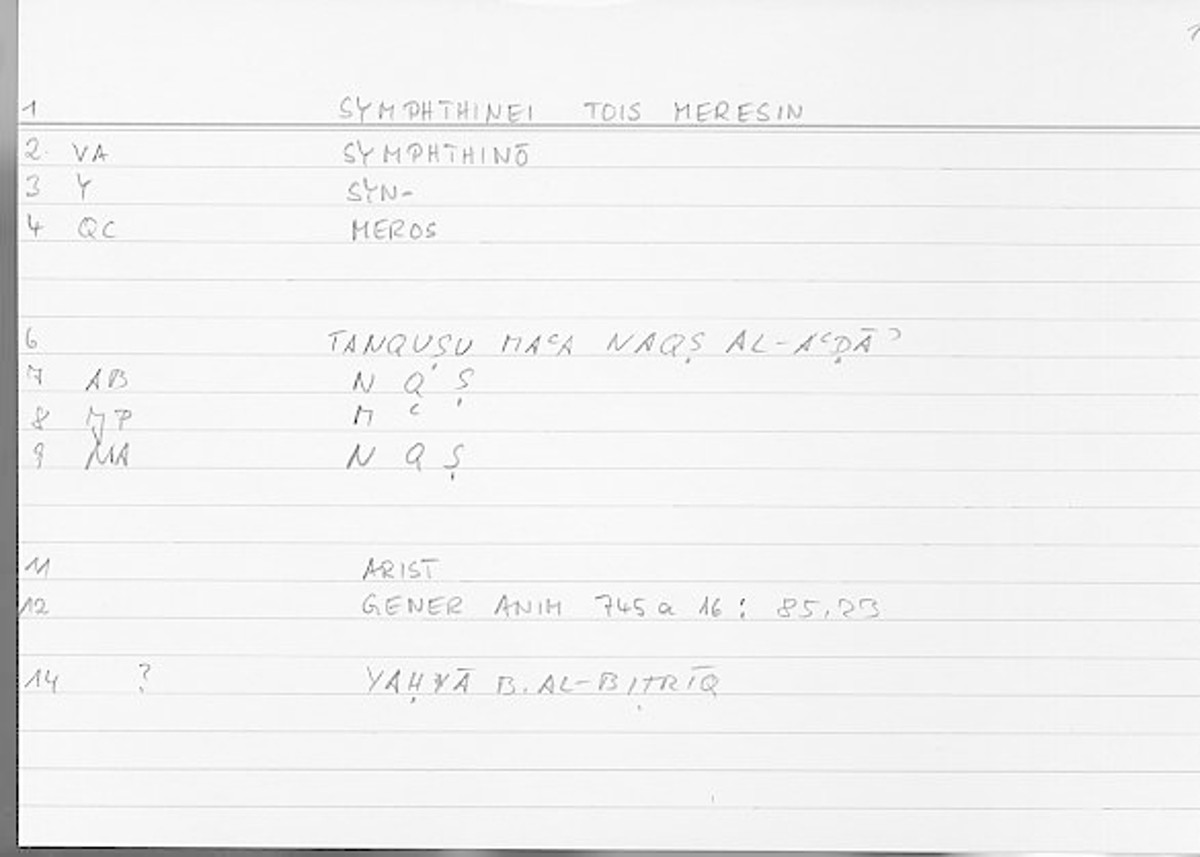 1 SYMPHTHINEI TOIS MERESIN
2 VA SYMPHTHINŌ
3 Y SYN-
4 QC MEROS
6 TANQUṢU MAᶜA NAQṢ AL-AᶜḌĀʾ
7 AB N Q Ṣ
8 MP M ᶜ
9 MA N Q Ṣ
11 ARIST
12 GENER ANIM 745a 16: 85,23
14 ? YAḤYĀ B. AL-BIṬRĪQ